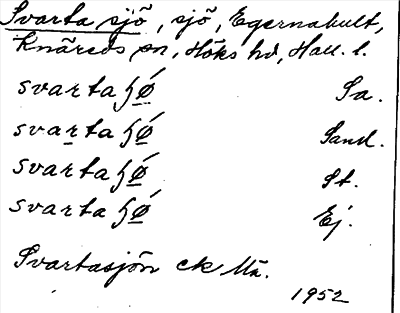 Svarta sjö, sjö, Egernahult,
Knäreds sn, Höks hd, Hall. l.
svarta ʃǿ Sa.
svarta ʃǿ Sand.
svarta ʃǿ St.
svarta ʃǿ Ej.
Svartasjön ek Uk.
1952